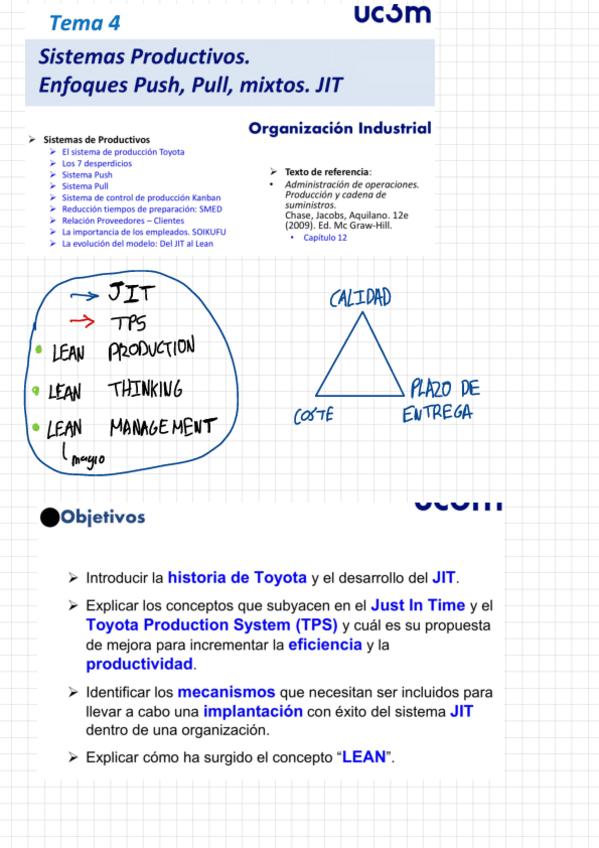 Tema 4
uc3m
Sistemas Productivos.
Enfoques Push, Pull, mixtos. JIT
Organización Industrial
Sistemas de Productivos
El sistema de producción Toyota
Los 7 desperdicios
Sistema Push
Sistema Pull
Sistema de control de producción Kanban
Reducción tiempos de preparación: SMED
Relación Proveedores – Clientes
La importancia de los empleados. SOIKUFU
La evolución del modelo: Del JIT al Lean
Texto de referencia:
Administración de operaciones.
Producción y cadena de
suministros.
Chase, Jacobs, Aquilano. 12e
(2009). Ed. Mc Graw-Hill.
Capítulo 12
JIT
TPS
LEAN PRODUCTION
LEAN THINKING
LEAN MANAGEMENT
magro
CALIDAD
COSTE
PLAZO DE
ENTREGA
uc3m
Objetivos
Introducir la historia de Toyota y el desarrollo del JIT.
Explicar los conceptos que subyacen en el Just In Time y el
Toyota Production System (TPS) y cuál es su propuesta
de mejora para incrementar la eficiencia y la
productividad.
Identificar los mecanismos que necesitan ser incluidos para
llevar a cabo una implantación con éxito del sistema JIT
dentro de una organización.
Explicar cómo ha surgido el concepto “LEAN”.